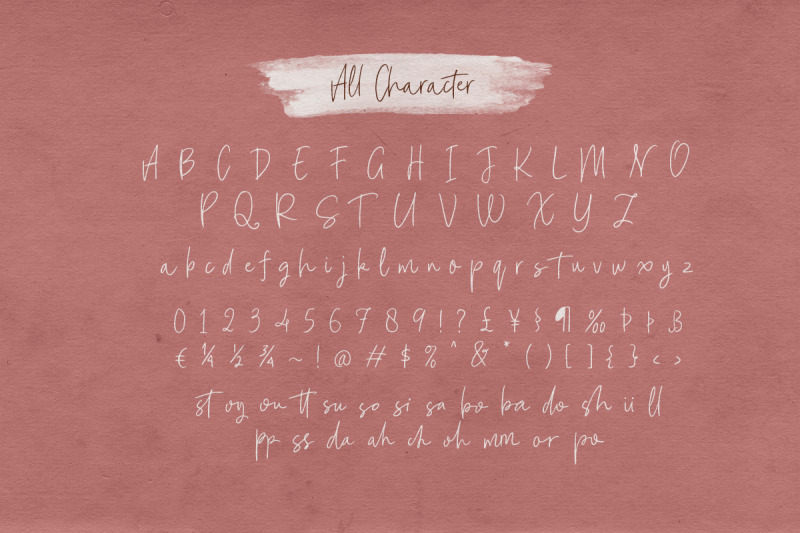 All Character
A B C D E F G H I J K L M N O
P Q R S T U V W X Y Z
a b c d e f g h i j k l m n o p q r s t u v w x y z
0 1 2 3 4 5 6 7 8 9 ! ? £ ¥ § ¶ ‰ Þ Þ ß
€ ¼ ½ ¾ ~ ! @ # $ % ^ & * ( ) [ ] { } < >
st oy ou tt su so si sa bo ba do sh ii ll
pp ss da ah ch oh mm or po